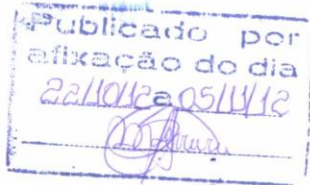 Publicado por
afixação do dia
22/10/12 a 05/11/12